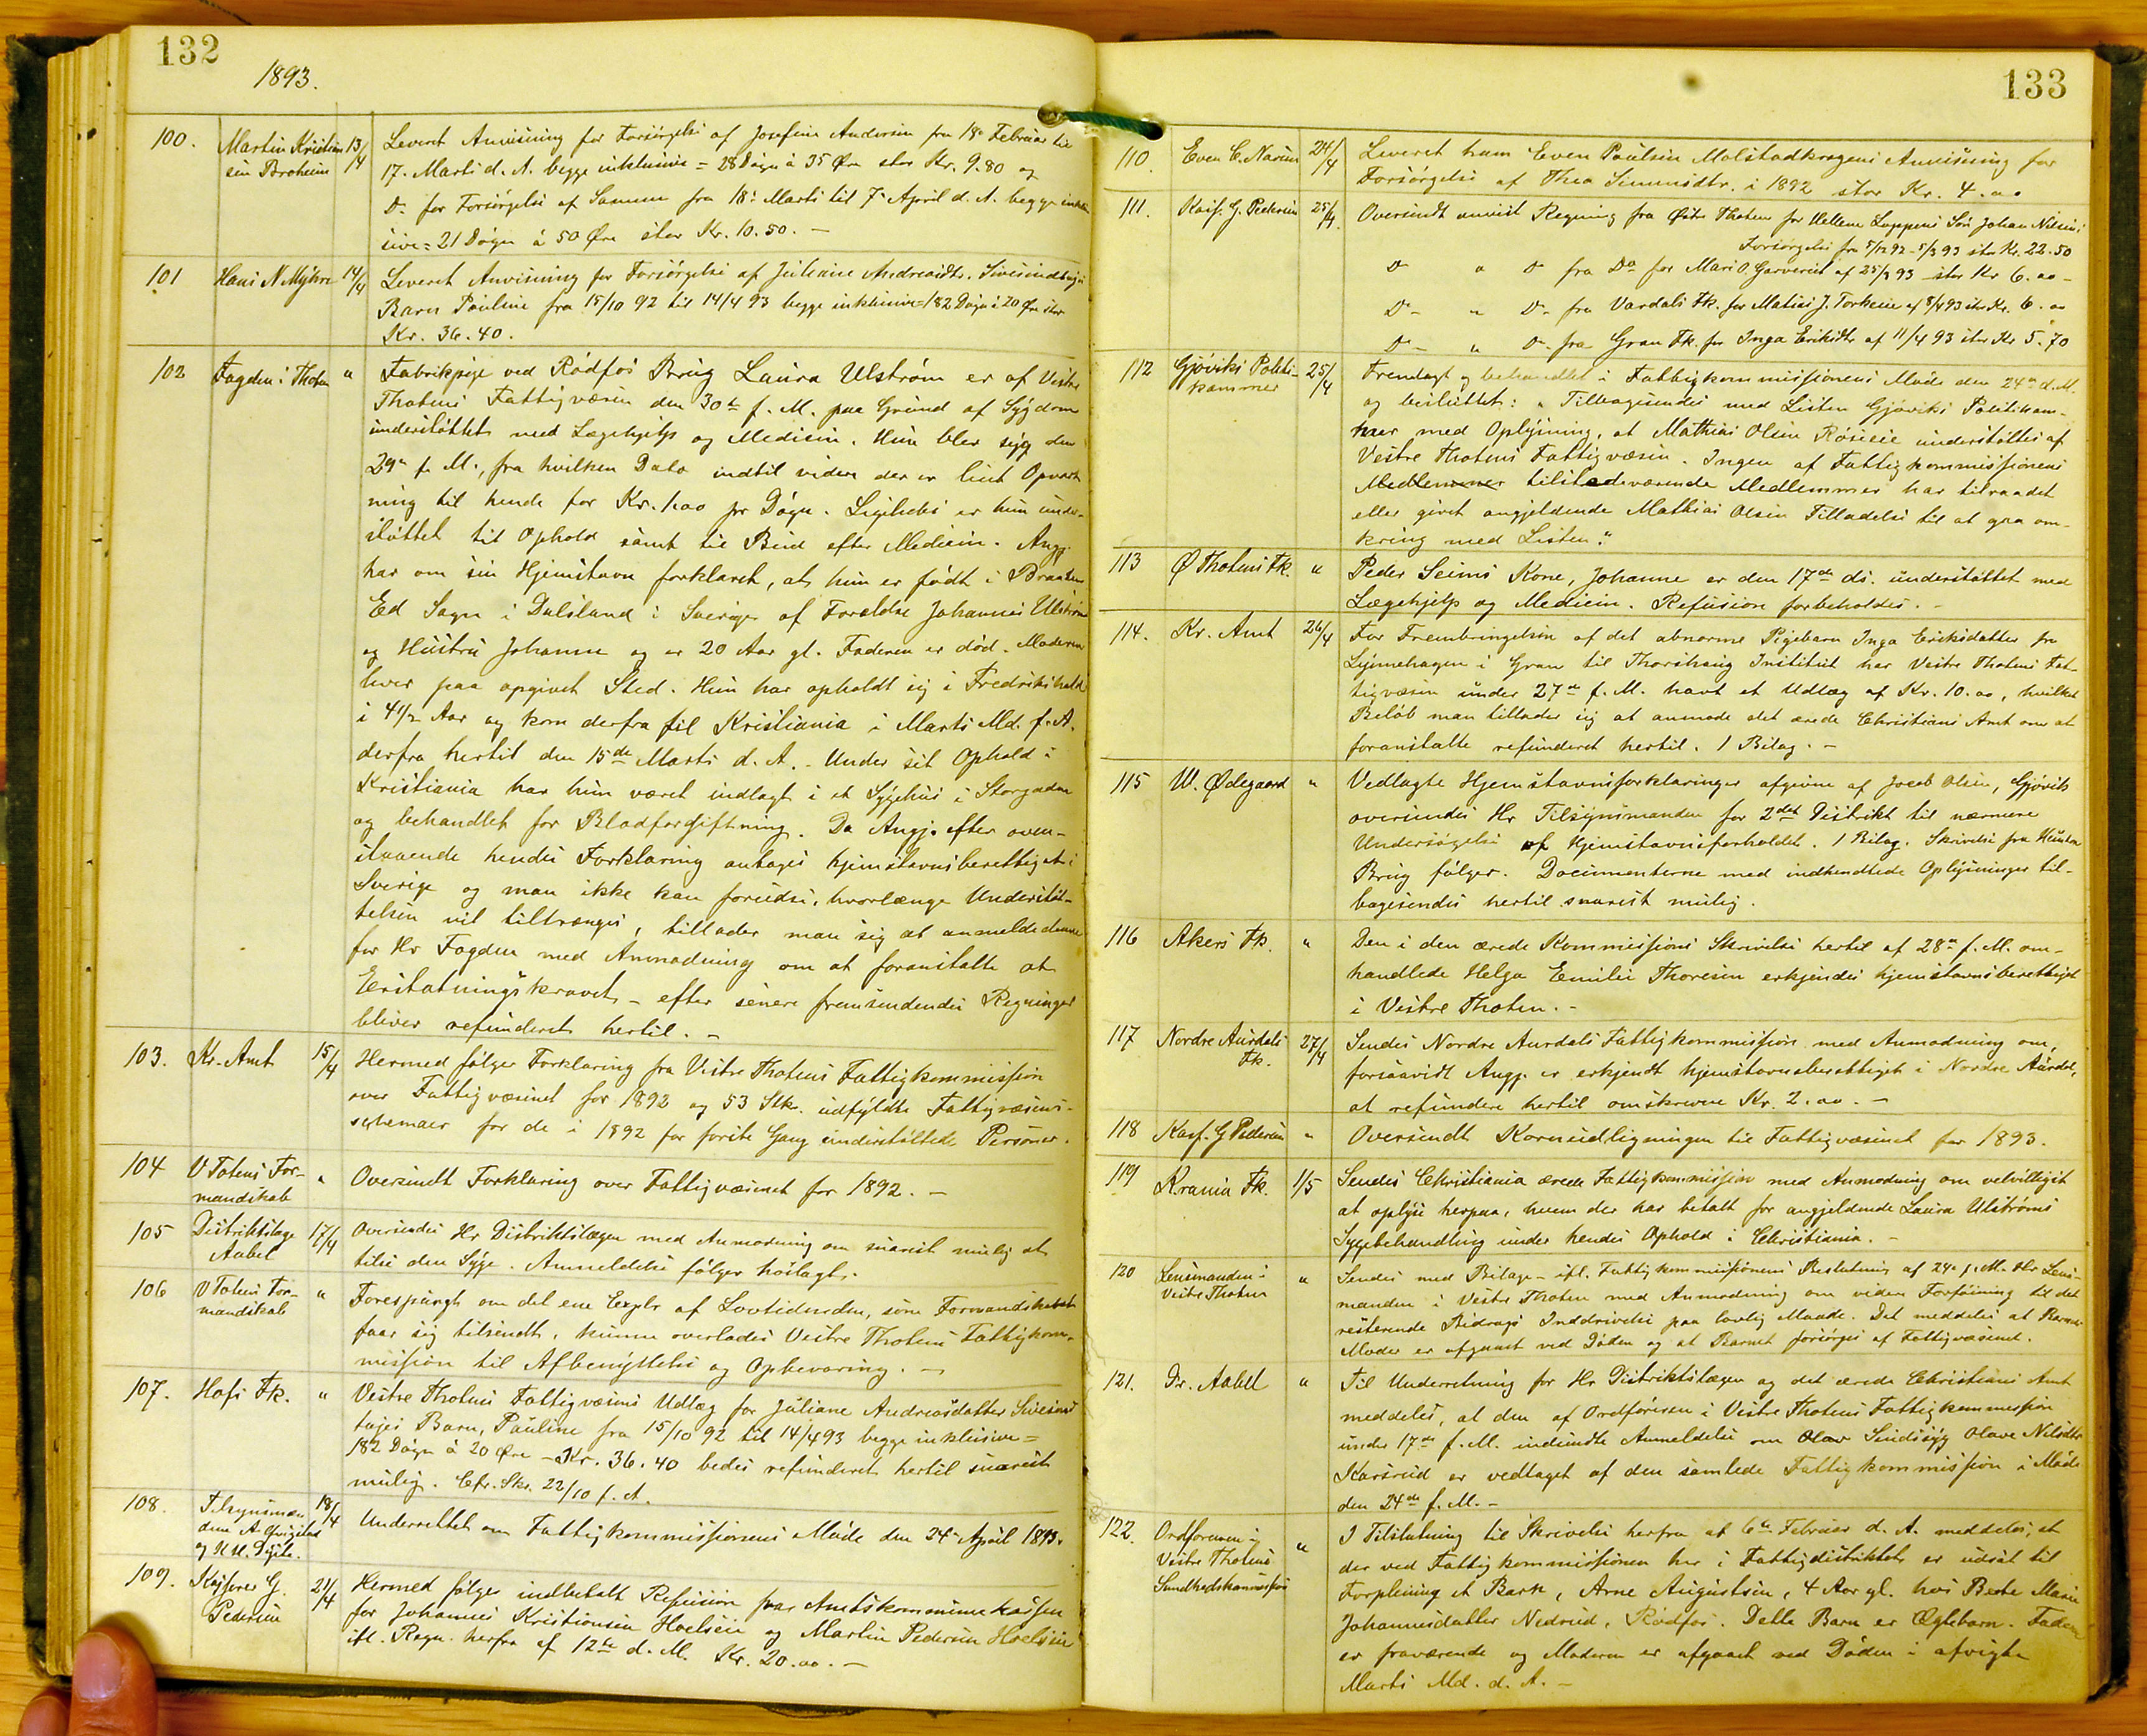 132
1893.
100. Martin Kristian- 13/4 Leveret Anvisning for Forsörgelse af Josefine Andersen fra 18de Februar til
sen Broheim 17. Marts d. A. begge inklusive = 28 Dögn à 35 Öre stor Kr. 9.80 og
Do for Forsörgelse af Samme fra 18de Marts til 7de April d. A. begge inklu-
sive = 21 Dögn à 50 Öre stor Kr. 10.50. —
101 Hans N Myhre 14/4 Leveret Anvisning for Forsörgelse af Juliane Andreasdtr.
Barn Pauline fra 15/10 92 til 14/4 93 begge inklusive = 182 Dögn à 20 Öre stor
Kr. 36.40.
102 Fogden i Thoten " Fabrikpige ved Rödfos Brug Laura Ulström er af Vestre
Thotens Fattigvæsen den 30te f. M. paa Grund af Sygdom
understöttet med Lægehjelp og Medicin. Hun blev syg den
29de f. M., fra hvilken Dato indtil videre der er leiet Opvart-
ning til hende for Kr. 1.00 pr Dögn. Ligeledes er hun under-
stöttet til Ophold samt til Bud efter Medicin. Angj.
har om sin Hjemstavn forklaret, at hun er födt i Braaten
Ed Sogn i Dalsland i Sverige af Forældre Johannes Ulström
og Hustru Johanne og er 20 Aar gl. Faderen er död. Moderen
lever paa opgivet Sted. Hun har opholdt sig i Fredrikshald
i 4 1/2 Aar og kom derfra til Kristiania i Marts Md. f. A.
derfra hertil den 15de Marts d. A. Under sit Ophold i
Kristiania har hun været indlagt i et Sygehus i Storgaden
og behandlet for Blodforgiftning. Da Angj. efter oven-
staaende hendes Forklaring antages hjemstavnsberettiget i
Sverige og man ikke kan forudse, hvorlænge Understöt-
telsen vil tiltrænges, tillader man sig at anmelde denne
for Hr Fogden med Anmodning om at foranstalte at
Erstatningskravet – efter senere fremsendendes Regninger
bliver refunderet hertil. —
103. Kr. Amt 15/4 Hermed fölger Forklaring fra Vestre Thotens Fattigkommission
over Fattigvæsenet for 1892 og 53 Stkr. udfyldte Fattigvæsens-
schemaer for de i 1892 for förste Gang understöttede Personer.
104 V Totens For- " Oversendt Forklaring over Fattigvæsenet for 1892. —
mandskab
105 Distriktslæge 17/4 Oversendes Hr Distriktslægen med Anmodning om snarest mulig at
Aabel tilse den Syge. Anmeldelse fölger höslagt.
106 V Totens For- " Forespurgt om det ene Explr af Lovtidenden, som Formandskabet
mandskab faar sig tilsendt, kunne overlades Vestre Thotens Fattigkom-
mission til Afbenyttelse og Opbevaring. —
107. Hofs Fk. " Vestre Thotens Fattigvæsens Udlæg for Juliane Andreasdatter
Barn, Pauline fra 15/10 92 til 14/4 93 begge inklusive =
182 Dögn à 20 Öre – Kr. 36.40 bedes refunderet hertil snarest
mulig. Cfr. Skr. 22/10 f. A.
108. Tilsynsmæn- 18/4 Underrettet om Fattigkommissionens Möde den 24de April 1893.
dene A.
og
109. Kasserer G. 21/4 Hermed fölger indbetalt Refusion fra Amtskommunekassen
Pedersen for Johannes Kristiansen Hoelseie og Martin Pedersen Hoelseie
ifl. Regn. herfra af 12te d. M. Kr. 20.00. —
133
110. Even C. Narum 24/4 Leveret ham Even Paulsen Molstadkragens Anvisning for
Forsörgelse af Thea Simensdtr. i 1892 stor Kr. 4.00
111. Kass. G. Pedersen 25/4. Oversendt anvist Regning fra Östre Thoten for Hellene Lappens Sön Johan Nilsens
Forsörgelse fra 5/12 92 – 5/3 93 stor Kr. 22.50
Do " Do fra Do for Mari O. Garverud af 25/3 93 stor Kr 6.00 –
Do – " Do – fra Vardals Fk. for Matias J. Torkeseie af 8/4 93 stor Kr. 6.00
Do – " Do – fra Gran Fk. for Inga Eriksdtr af 11/4 93 stor Kr 5.70
112 Gjöviks Politi- 25/4 Fremlagt og behandlet i Fattigkommissionens Möde den 24de d. M.
kammer og besluttet: " Tilbagesendes med Listen Gjöviks Politikam-
mer med Oplysning, at Mathias Olsen Röseie understöttes af
Vestre Thotens Fattigvæsen. Ingen af Fattigkommissionens
Medlemmer tilstedeværende Medlemmer har tilraadet
eller givet angjeldende Mathias Olsen Tilladelse til at gaa om-
kring med Listen."
113 Ö Thotens Fk. " Peder Seims Kone, Johanne er den 17de ds. understöttet med
Lægehjelp og Medicin. Refusion forbeholdes. –
114. Kr. Amt 26/4 For Frembringelsen af det abnorme Pigebarn Inga Eriksdatter fra
Lynnehagen i Gran til Thorshaug Institut har Vestre Thotens Fat-
tigvæsen under 27de f. M. havt et Udlæg af Kr. 10.00, hvilket
Belöb man tillader sig at anmode det ærede Christians Amt om at
foranstalte refunderet hertil. 1 Bilag. –
115 W. Ödegaard " Vedlagte Hjemstavnsforklaringer afgivne af Jocob Olsen, Gjövik
oversendes Hr Tilsynsmanden for 2det Distrikt til nærmere
Undersögelse af Hjemstavnsforholdet. 1 Bilag. Skrivelse fra Hunton
Brug fölger. Documenterne med indhendtede Oplysninger til-
bagesendes hertil snarest mulig.
116 Akers Fk. " Den i den ærede Kommissions Skrivelse hertil af 28de f. M. om-
handlede Helga Emilie Thoresen erkjendes hjemstavnsberettiget
i Vestre Thoten. –
117 Nordre Aurdals 27/4 Sendes Nordre Aurdals Fattigkommission med Anmodning om,
Fk. forsaavidt Angj. er erkjendt hjemstavnsberettiget i Nordre Aurdal,
at refundere hertil omskrevne Kr. 2.00. –
118 Kass. G Pedersen " Oversendt Kornudligningen til Fattigvæsenet for 1893.
119 Krania Fk. 1/5 Sendes Christiania ærede Fattigkommission med Anmodning om velvilligst
at oplyse herpaa, hvem der har betalt for angjeldende Laura Ulströms
Sygebehandling under hendes Ophold i Christiania. –
120 Lensmanden i " Sendes med Bilage – ifl. Fattigkommissionens Beslutning af 24de f. M. Hr Lens-
Vestre Thoten manden i Vestre Thoten med Anmodning om videre Forföining til det
resterende Bidrags Inddrivelse paa lovlig Maade. Det meddeles at Barnets
Moder er afgaaet ved Döden og at Barnet forsörges af Fattigvæsenet.
121. Dr. Aabel " Til Underretning for Hr Distriktslægen og det ærede Christians Amt
meddeles, at den af Ordföreren i Vestre Thotens Fattigkommission
under 17de f. M. indsendte Anmeldelse om Olav Sindssyg Olave Nilsdtr
Karsrud er vedtaget af den samlede Fattigkommission i Möde
den 24de f. M. –
122. Ordföreren i " I Tilslutning til Skrivelse herfra af 6te Februar d. A. meddeles, at
Vestre Thotens der ved Fattigkommissionen her i Fattigdistriktet er udsat til
Sundhedskommission Forpleining et Barn, Arne Augustsen, 4 Aar gl. hos Berte Marie
Johannesdatter Nedrud, Rödfos. Dette Barn er Ægtebarn. Faderen
er fraværende og Moderen er afgaaet ved Döden i afvigte
Marts Md. d. A. –